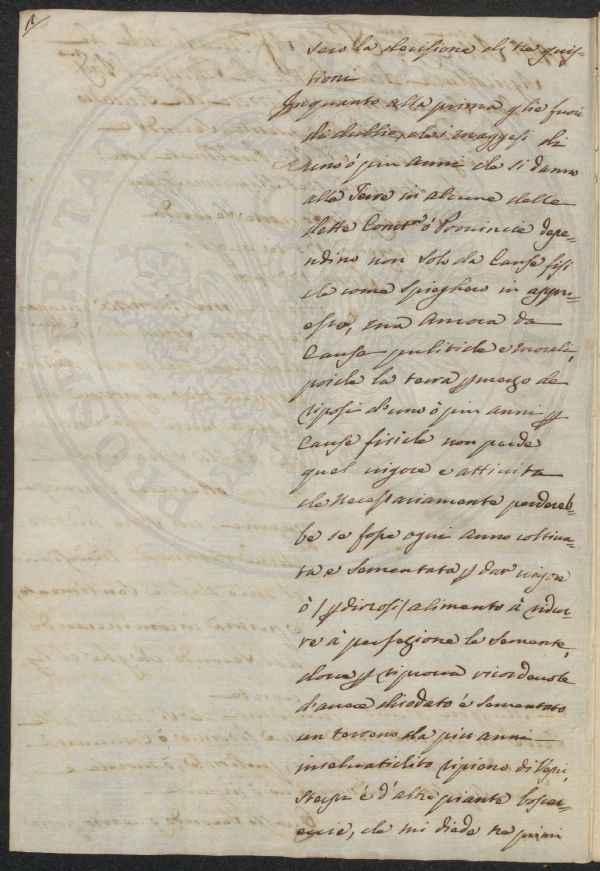 sero la decisione di tre quis-
tioni
Inquanto alla prima q lié fuori
di dubbio, che i maggesi di
uno ó piu anni che si danno
alla Terre in alcune delle
dette Comtre ó Provincie depe-
ndino non solo da Cause fisi
che come spiegheró in appr-
esso, ma ancora da
Cause politiche e morali,
poiche la terra p mezo de
riposi d'uno ó piu anni p
Cause fisiche non perde
quel vigore e attività
che necessariamente perdereb-
be se fosse ogni anno coltiva-
ta e sementata p dar vigore
ó /p dir cosi/ alimento á ridur-
re á perfezione le semente,
dove p riprova ricordevole
d'avere disodato é sementato
un terreno da piu anni
insalvatichito ripieno di lepri,
sterpi é d'altre piante boscar-
eccie, che mi diede ne primi